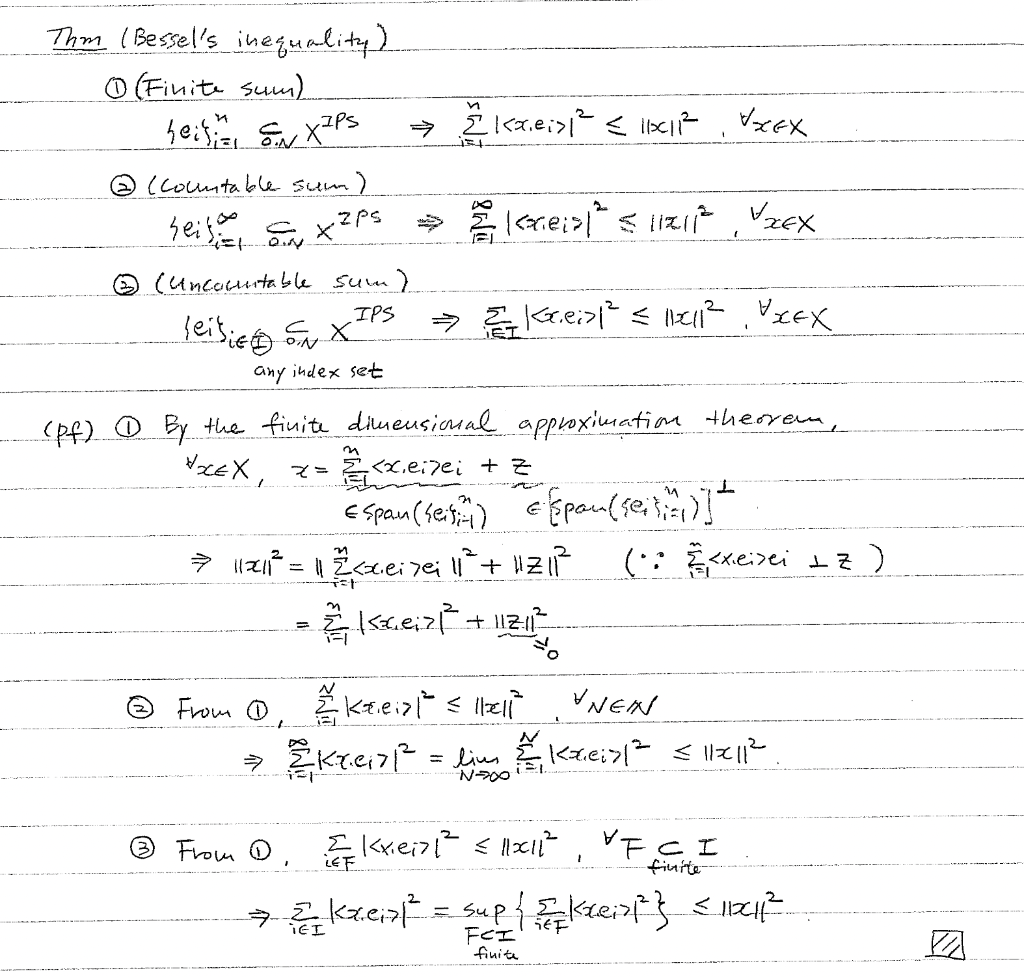 Thm (Bessel's inequality)
① (Finite sum)
{ei}ⁿᵢ₌₁ ⊂ O.N X^IPS ⇒ Σⁿᵢ₌₁ |<x,ei>|² ≤ ||x||², ∀x∈X
② (Countable sum)
{ei}^∞ᵢ₌₁ ⊂ O.N X^IPS ⇒ Σ^∞ᵢ₌₁ |<x,ei>|² ≤ ||x||², ∀x∈X
③ (Uncountable sum)
{ei}i∈I ⊂ O.N X^IPS ⇒ Σi∈I |<x,ei>|² ≤ ||x||², ∀x∈X
any index set
(pf) ① By the finite dimensional approximation theorem,
∀x∈X, x = Σⁿᵢ₌₁ <x,ei>ei + z
∈ span({ei}ⁿᵢ₌₁) ∈ [span({ei}ⁿᵢ₌₁)]^⊥
⇒ ||x||² = ||Σⁿᵢ₌₁ <x,ei>ei||² + ||z||² (∵ Σⁿᵢ₌₁ <x,ei>ei ⊥ z)
= Σⁿᵢ₌₁ |<x,ei>|² + ||z||²
≥ 0
② From ①, Σ^Nᵢ₌₁ |<x,ei>|² ≤ ||x||², ∀N∈ℕ
⇒ Σ^∞ᵢ₌₁ |<x,ei>|² = lim N→∞ Σ^Nᵢ₌₁ |<x,ei>|² ≤ ||x||².
③ From ①, Σi∈F |<x,ei>|² ≤ ||x||², ∀F ⊂ I
finite
⇒ Σi∈I |<x,ei>|² = sup { Σi∈F |<x,ei>|² } ≤ ||x||²
F⊂I
finite